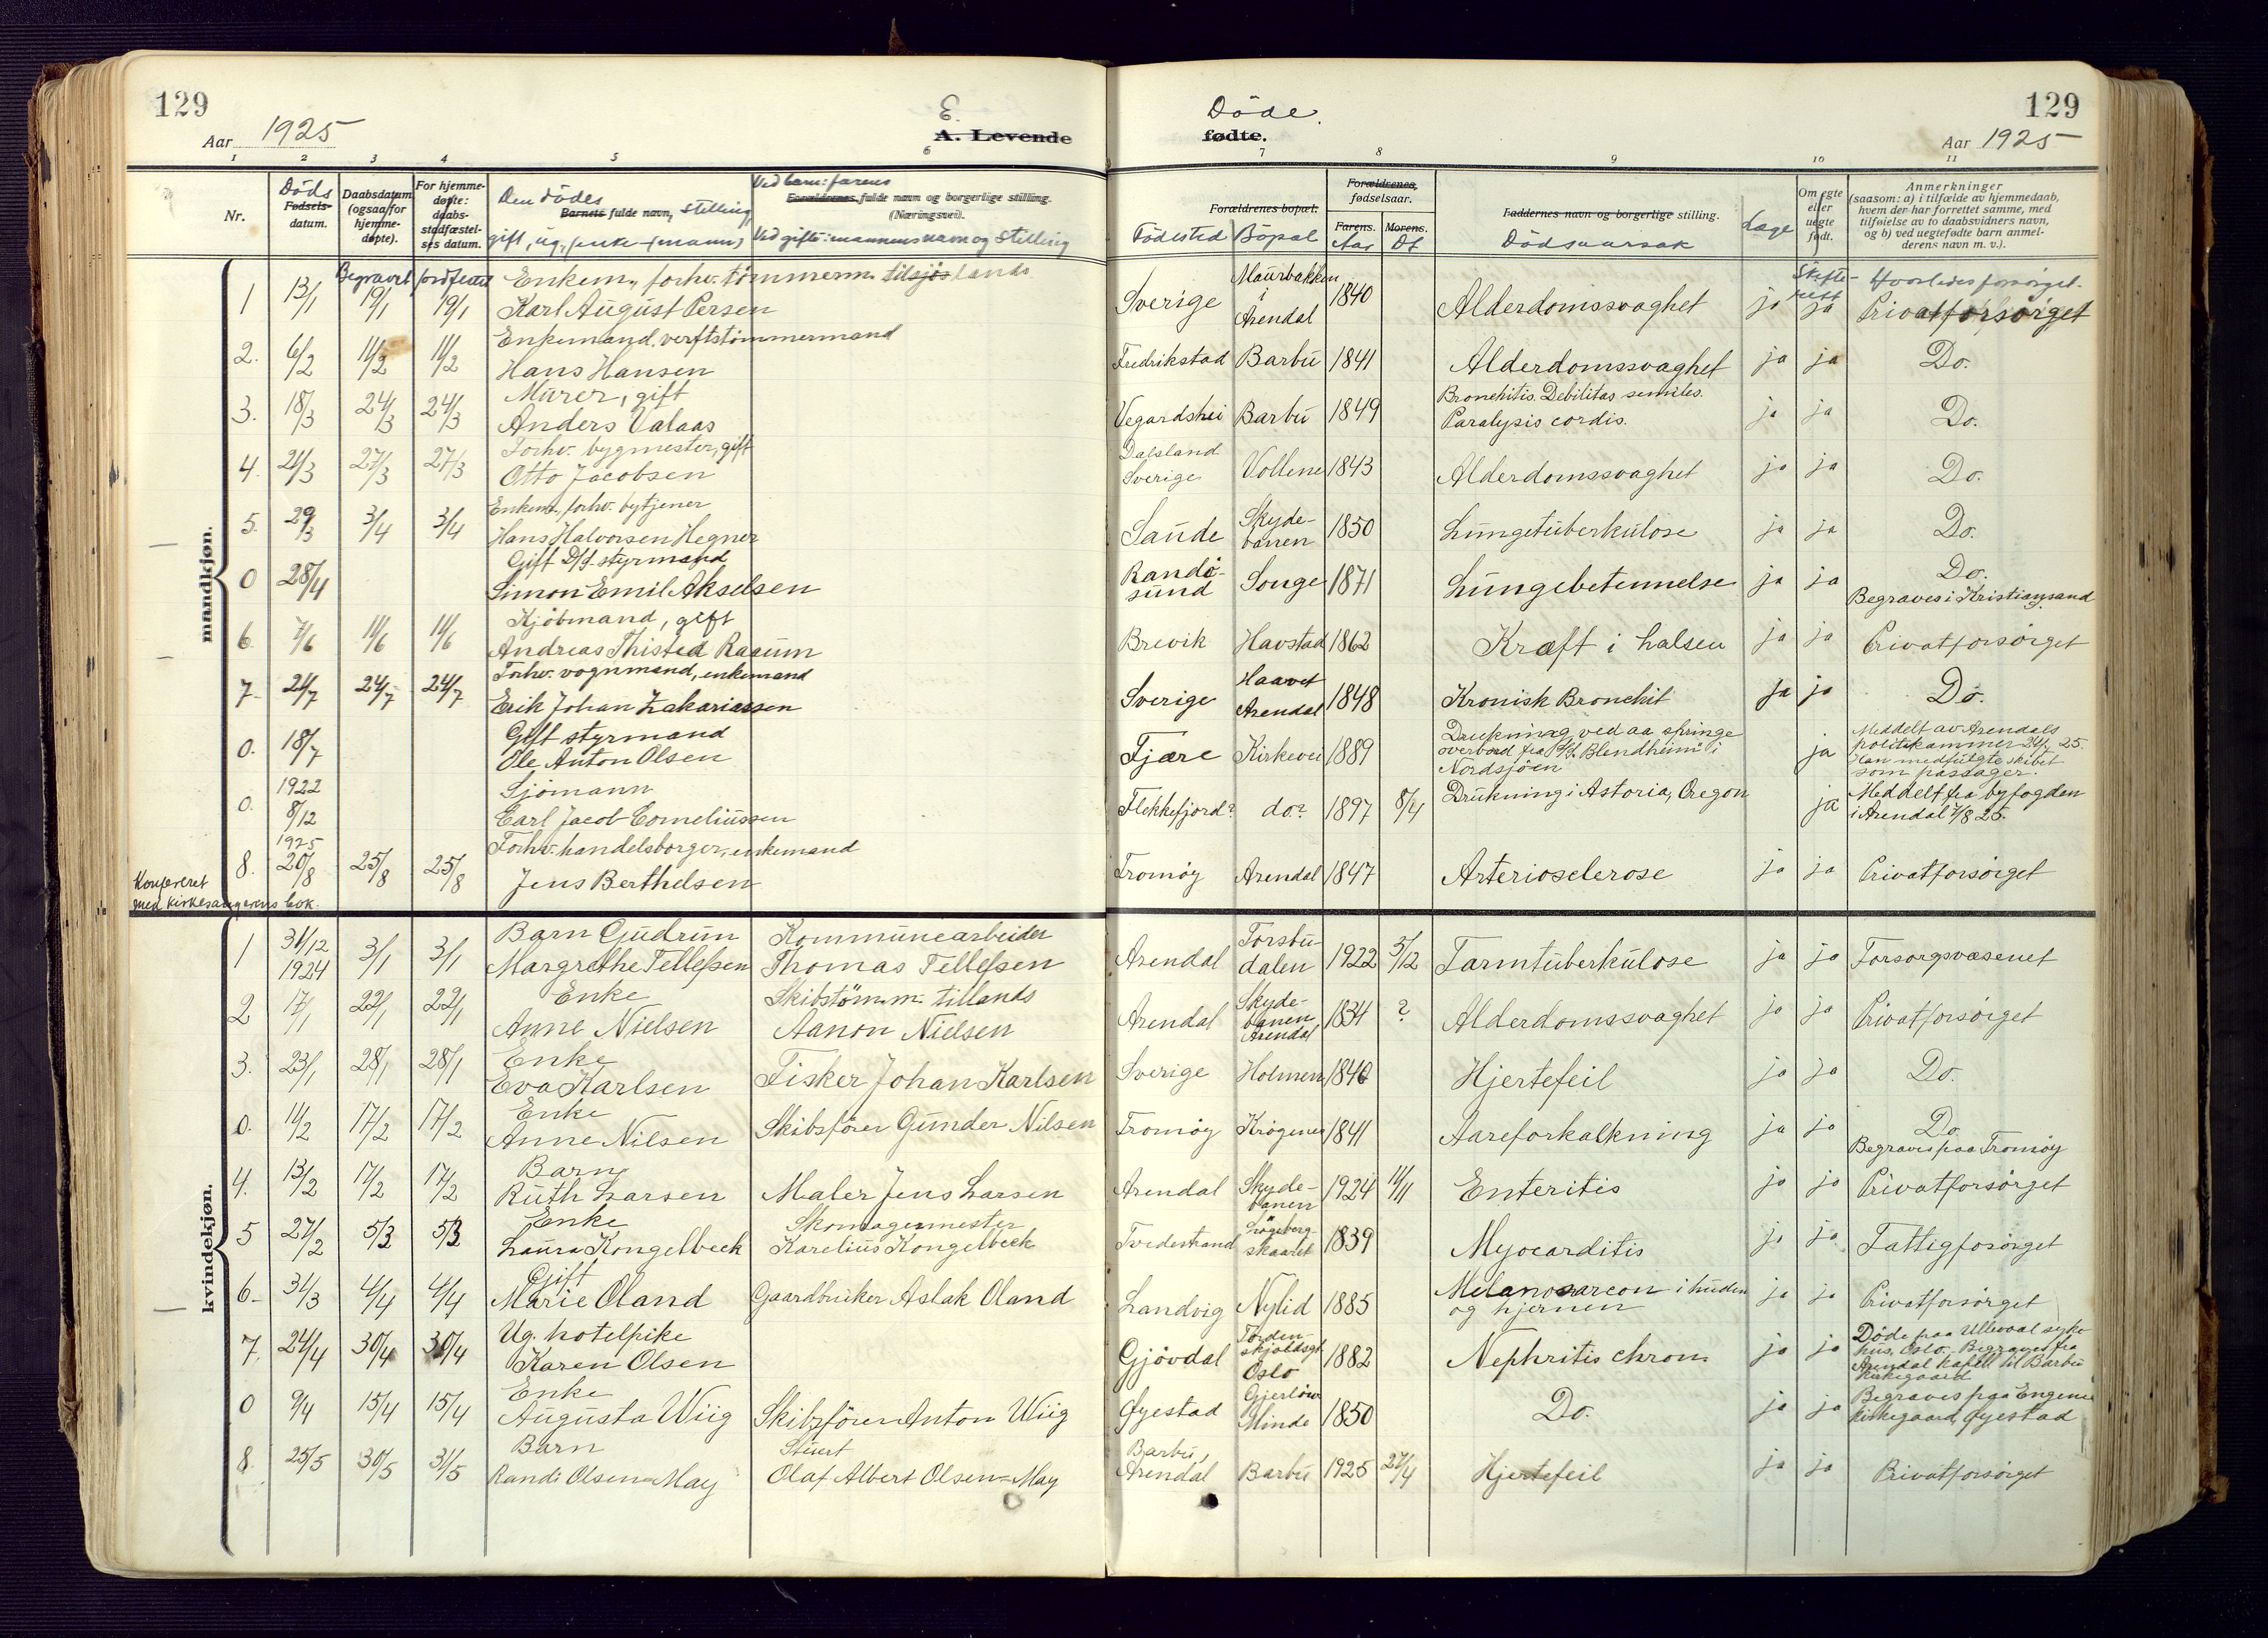 129
Aar 1925
E.
A. Levende
Døde.
fødte.
129
Aar 1925
1 2 3 4 5 6 7 8 9 10 11
Nr.
Døds
Fødsels-
datum.
Daabsdatum
(ogsaa for
hjemme-
døpte).
For hjemme-
døpte:
daabs-
stadfæstel-
ses datum.
Den dødes
Barnets fulde navn, stilling,
gift, ug., enke (mann)
Ved barn: farens
Forældrenes fulde navn og borgerlige stilling.
(Næringsvei).
Ved gifte: mannens navn og stilling
Forældrenes bopæl.
Fødested Bopæl
Forældrenes
fødselsaar.
Farens. Morens.
Aar Dt
Faddernes navn og borgerlige stilling.
Dødsaarsak
Læge
Om egte
eller
uegte
født.
Anmerkninger
(saasom: a) i tilfælde av hjemmedaab,
hvem der har forrettet samme, med
tilføielse av to daabsvidners navn,
og b) ved uegtefødte barn anmel-
derens navn m. v.).
mandkjøn.
Begravet jordfestet
Skifte-
rett
Hvorledes forsørget.
Enkem., forhv. tømmerm. tilsjøs lands
1 13/1 19/1 19/1 Karl August Persen Sverige Maurbakken i Arendal 1840 Alderdomssvaghet ja ja Privatforsørget
Enkemand. verftstømmermand
2. 6/2 11/2 11/2 Hans Hansen Fredrikstad Barbu 1841 Alderdomssvaghet ja ja Do.
Murer, gift
3. 18/3 24/3 24/3 Anders Valaas Vegardshei Barbu 1849 Bronchitis. Debilitas seniles. Paralysis cordis. ja ja Do.
Forhv. bygmester, gift
4. 21/3 27/3 27/3 Otto Jacobsen Dalsland Sverige Vollene 1843 Alderdomssvaghet ja ja Do.
Enkem., forhv. bytjener
5. 29/3 3/4 3/4 Hans Halvorsen Hegner Saude Skyde-banen 1850 Lungetuberkulose ja ja Do.
Gift D/S styrmand
0 28/4 Simon Emil Akselsen Randø-sund Songe 1871 Lungebetennelse ja ja Do.
Begraves i Kristiansand
Kjøbmand, gift
6. 7/6 11/6 11/6 Andreas Thisted Raaum Brevik Havstad 1862 Kræft i halsen ja ja Privatforsørget
Forhv. vognmand, enkemand
7. 21/7 24/7 24/7 Erik Johan Zakariassen Sverige Haavet Arendal 1848 Kronisk Bronchit ja ja Do.
Gift styrmand
0. 18/7 Ole Anton Olsen Fjære Kirkevei 1889 Drukning ved aa springe overbord fra D/S. Blendheim" i Nordsjøen ja Meddelt av Arendals politikammer 24/7 25. Han medfulgte skibet som passager.
Sjømann
0. 1922 8/12 Carl Jacob Corneliussen Flekkefjord? do? 1897 8/4 Drukning i Astoria, Oregon ja Meddelt fra byfogden i Arendal 7/8 25.
Forhv. handelsborger, enkemand
8. 1925 20/8 25/8 25/8 Jens Berthelsen Tromøy Arendal 1847 Arteriosclerose ja ja Privatforsørget
Konfereret
med kirkesangerens bok.
kvindekjøn.
Barn Gudrun Kommunearbeider
1 31/12 1924 3/1 3/1 Margrethe Tellefsen Thomas Tellefsen Arendal Torsbu-dalen 1922 3/12 Tarmtuberkulose ja ja Forsorgsvæsenet
Enke Skibstømm. tillands
2 17/1 22/1 22/1 Anne Nielsen Aanon Nielsen Arendal Skyde-banen Arendal 1834 ? Alderdomssvaghet ja ja Privatforsørget
Enke
3. 23/1 28/1 28/1 Eva Karlsen Fisker Johan Karlsen Sverige Holmen 1840 Hjertefeil ja ja Do.
Enke
0. 11/2 17/2 17/2 Anne Nilsen Skibsfører Gunder Nilsen Tromøy Krøgenes 1841 Aareforkalkning ja ja Do.
Begraves paa Tromøy
Barn
4. 13/2 17/2 17/2 Ruth Larsen Maler Jens Larsen Arendal Skyde-banen 1924 11/11 Enteritis ja ja Privatforsørget
Enke Skomagermester
5 27/2 5/3 5/3 Laura Kongelbeck Karelius Kongelbeck Tvedestrand skaaret 1839 Myocarditis ja ja Fattigforsørget
Gift
6. 31/3 4/4 4/4 Marie Oland Gaardbruker Aslak Oland Landvig Nylid 1885 Melanosarcon i huden og hjernen ja ja Privatforsørget
Ug. hotelpike
7. 24/4 30/4 30/4 Karen Olsen Gjøvdal Torden-skjoldsgt Oslo 1882 Nephritis chron. ja ja Døde paa Ulleval syke-hus, Oslo. Begravet fra Arendal kapell til Barbu kirkegaard
Enke
0 9/4 15/4 15/4 Augusta Wiig Skibsfører Anton Wiig Øyestad Gjerløw Minde 1850 Do. ja ja Begraves paa Engene kirkegaard, Øyestad
Barn Stuert
8. 25/5 30/5 31/5 Randi Olsen=May Olaf Albert Olsen=May Barbu, Arendal Barbu 1925 27/4 Hjertefeil ja ja Privatforsørget